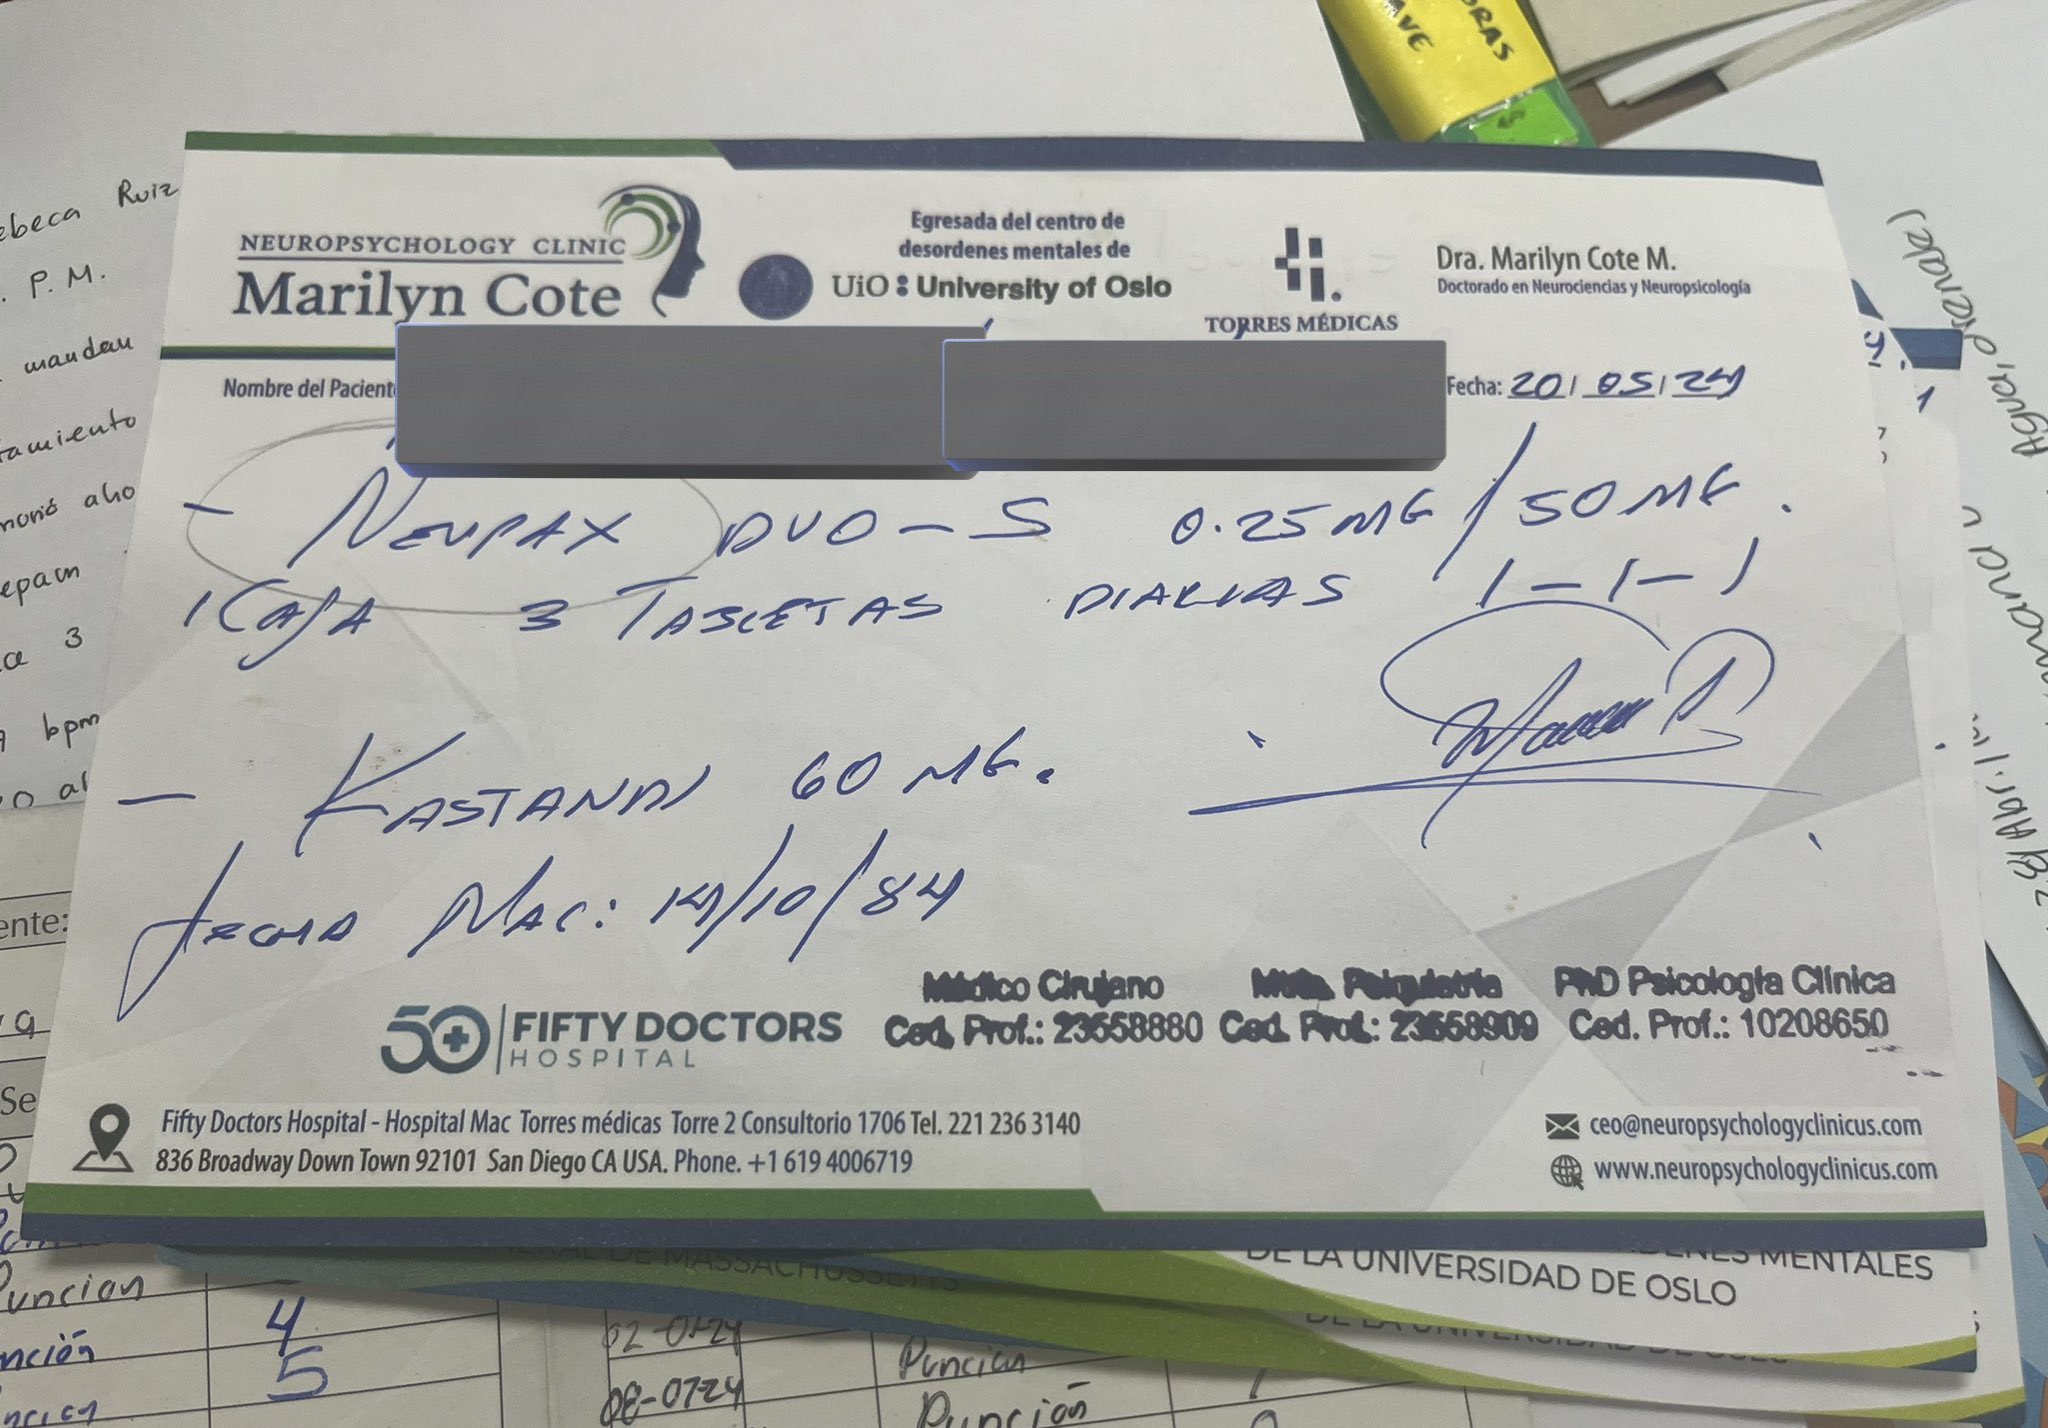 ORAS
AVE
Ruiz
P. M.
mandan
bpm
NEUROPSYCHOLOGY CLINIC
Marilyn Cote
Egresada del centro de
desordenes mentales de
UiO: University of Oslo
TORRES MÉDICAS
Dra. Marilyn Cote M.
Doctorado en Neurociencias y Neuropsicología
Nombre del Pacient
Fecha: 20/05/24
- NEUPAX DUO-S 0.25 MG/50 MG.
1 CAJA 3 TABLETAS DIARIAS 1-1-1
- KASTANDI 60 MG.
FECHA NAC: 14/10/84
50 FIFTY DOCTORS
HOSPITAL
Médico Cirujano
Ced. Prof.: 23658880
Psiquiatría
Ced. Prof.: 23658909
PhD Psicología Clínica
Ced. Prof.: 10208650
Fifty Doctors Hospital - Hospital Mac Torres médicas Torre 2 Consultorio 1706 Tel. 221 236 3140
836 Broadway Down Town 92101 San Diego CA USA. Phone. +1 619 4006719
ceo@neuropsychologyclinicus.com
www.neuropsychologyclinicus.com
DE MASSACHUSSETTS
MENTALES
DE LA UNIVERSIDAD DE OSLO
Punción
4
5
Punción
Punción